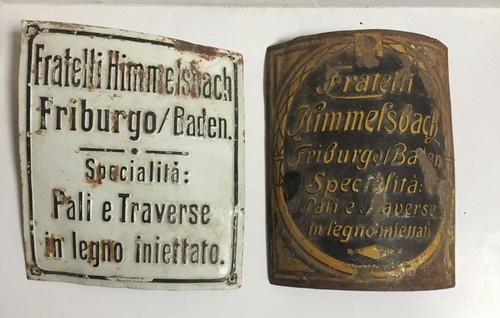 Fratelli Himmelsbach
Friburgo/Baden.
Specialità:
Pali e Traverse
in legno iniettato.
Fratelli
Himmelsbach
Friburgo/Baden
Specialità:
Pali e Traverse
in legno iniettati